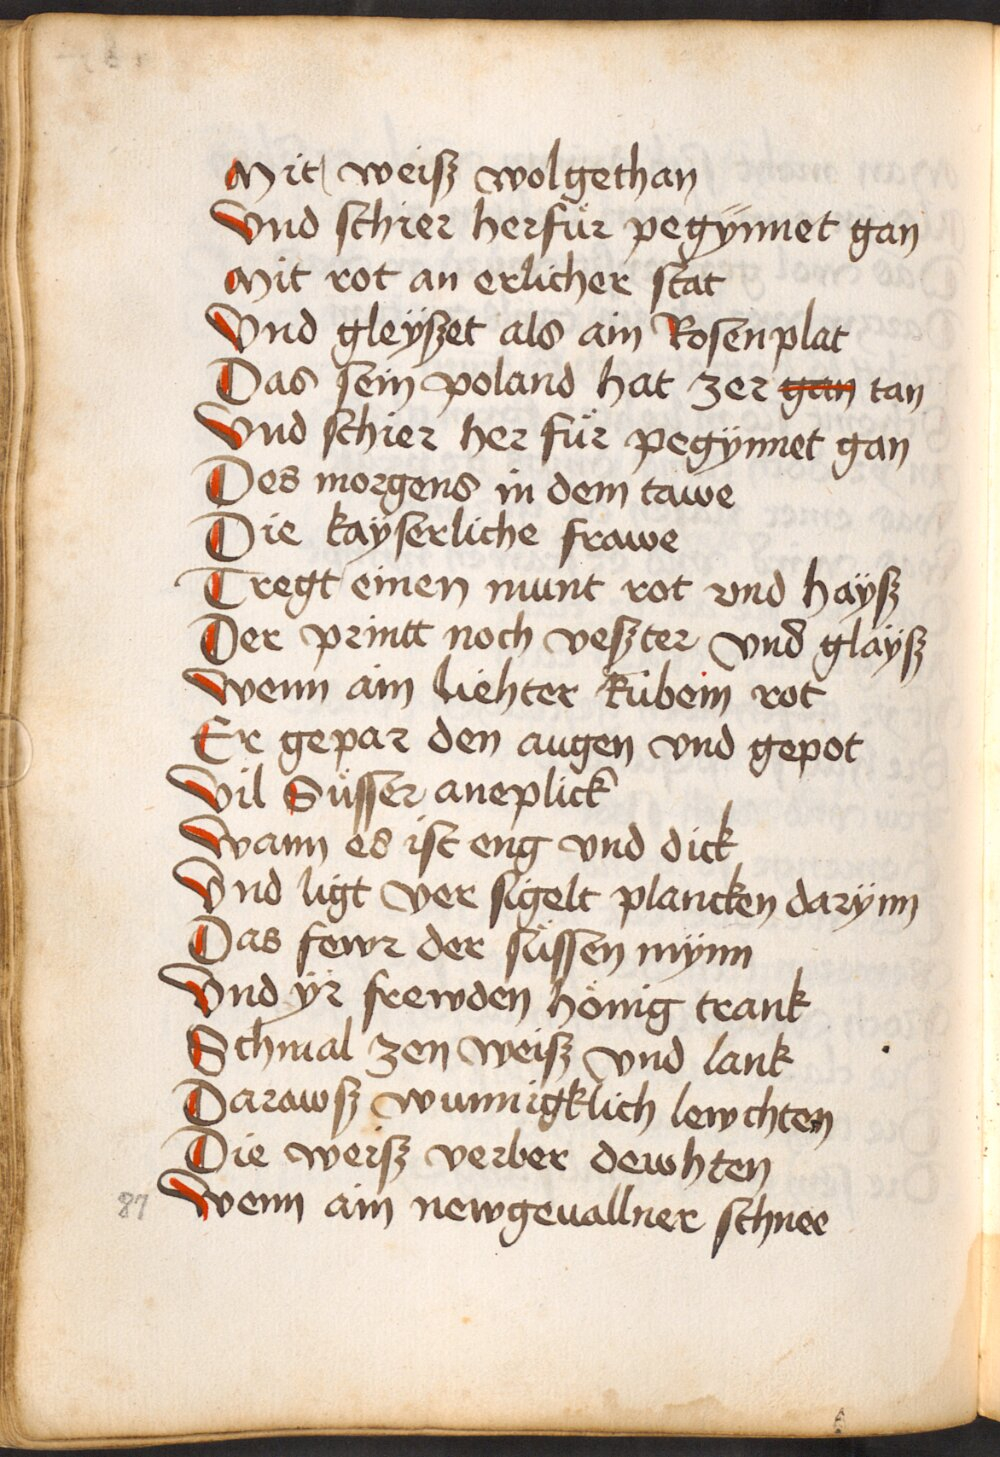 Mit weisz wolgethan
Vnd schier herfür pegÿnnet gan
Mit rot an erlicher stat
Vnd gleÿszet als ain Rosenplat
Das sein poland hat zer gan tan
Vnd schier her für pegÿnnet gan
Des morgens in dem tawe
Die kaÿserliche frawe
Tregt einen munt rot vnd haÿsz
Der printt noch veszter vnd glaÿsz
Wenn ain liehter Rubein rot
Er gepar den augen vnd gepot
Vil Süsser aneplick
Wann es ist eng vnd dick
Vnd ligt ver sigelt plancken darÿnn
Das fewr der süssen mÿnn
Vnd ÿr frewden hönig trank
Schmal zen weisz vnd lank
Darawsz wunnigklich lewchten
Die weisz verber dewhten
87 Wenn ain newgeuallner schnee